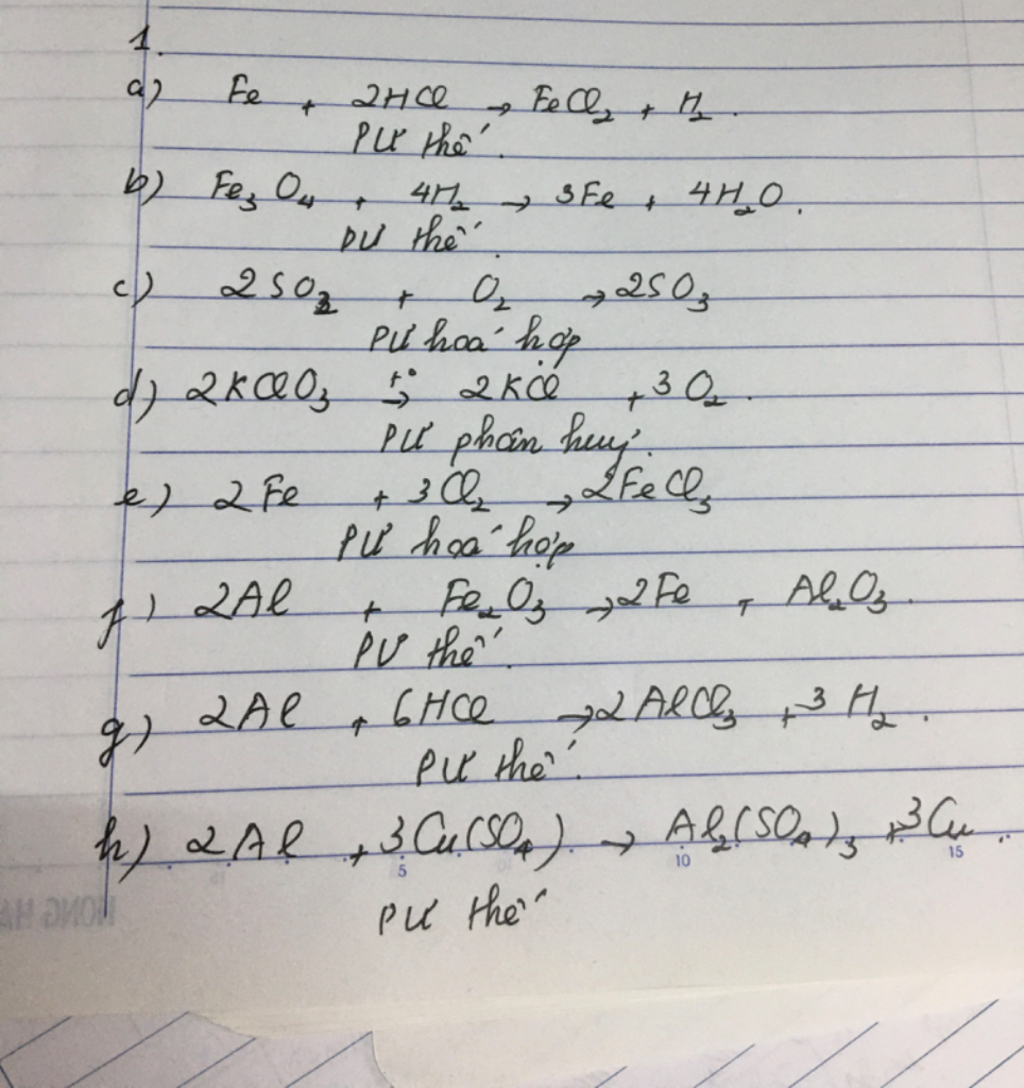 1.
a) Fe + 2HCl → FeCl₂ + H₂.
PƯ thế.
b) Fe₃O₄ + 4H₂ → 3Fe + 4H₂O.
PƯ thế.
c) 2SO₂ + O₂ → 2SO₃
PƯ hoá hợp
d) 2KClO₃ t° → 2KCl + 3O₂.
PƯ phân huỷ.
e) 2Fe + 3Cl₂ → 2FeCl₃
PƯ hoá hợp
f) 2Al + Fe₂O₃ → 2Fe + Al₂O₃.
PƯ thế.
g) 2Al + 6HCl → 2AlCl₃ + 3H₂.
PƯ thế.
h) 2Al + 3Cu(SO₄) → Al₂(SO₄)₃ + 3Cu.
5 10 15
PƯ thế